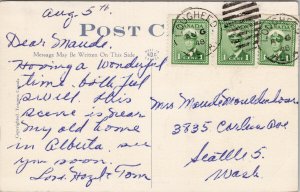 Aug 5th
POST C
Message May Be Written On This Side
Dear Maude.
Having a wonderful
time. both feel
swell. This
scene is near
my old home
in Alberta. see
you soon.
Love Hazel & Tom
LOUGHEED
1 1
Mrs Maude
3835
Seattle 5.
Wash